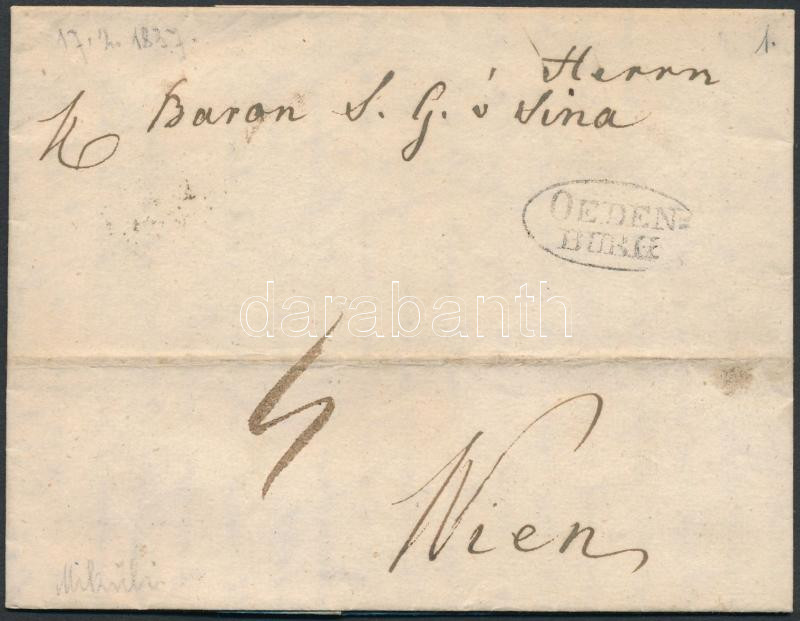 17. 2. 1837.
1.
Herrn
Baron S. G. v Sina
OEDEN=
BURG
darabanth
4
Wien